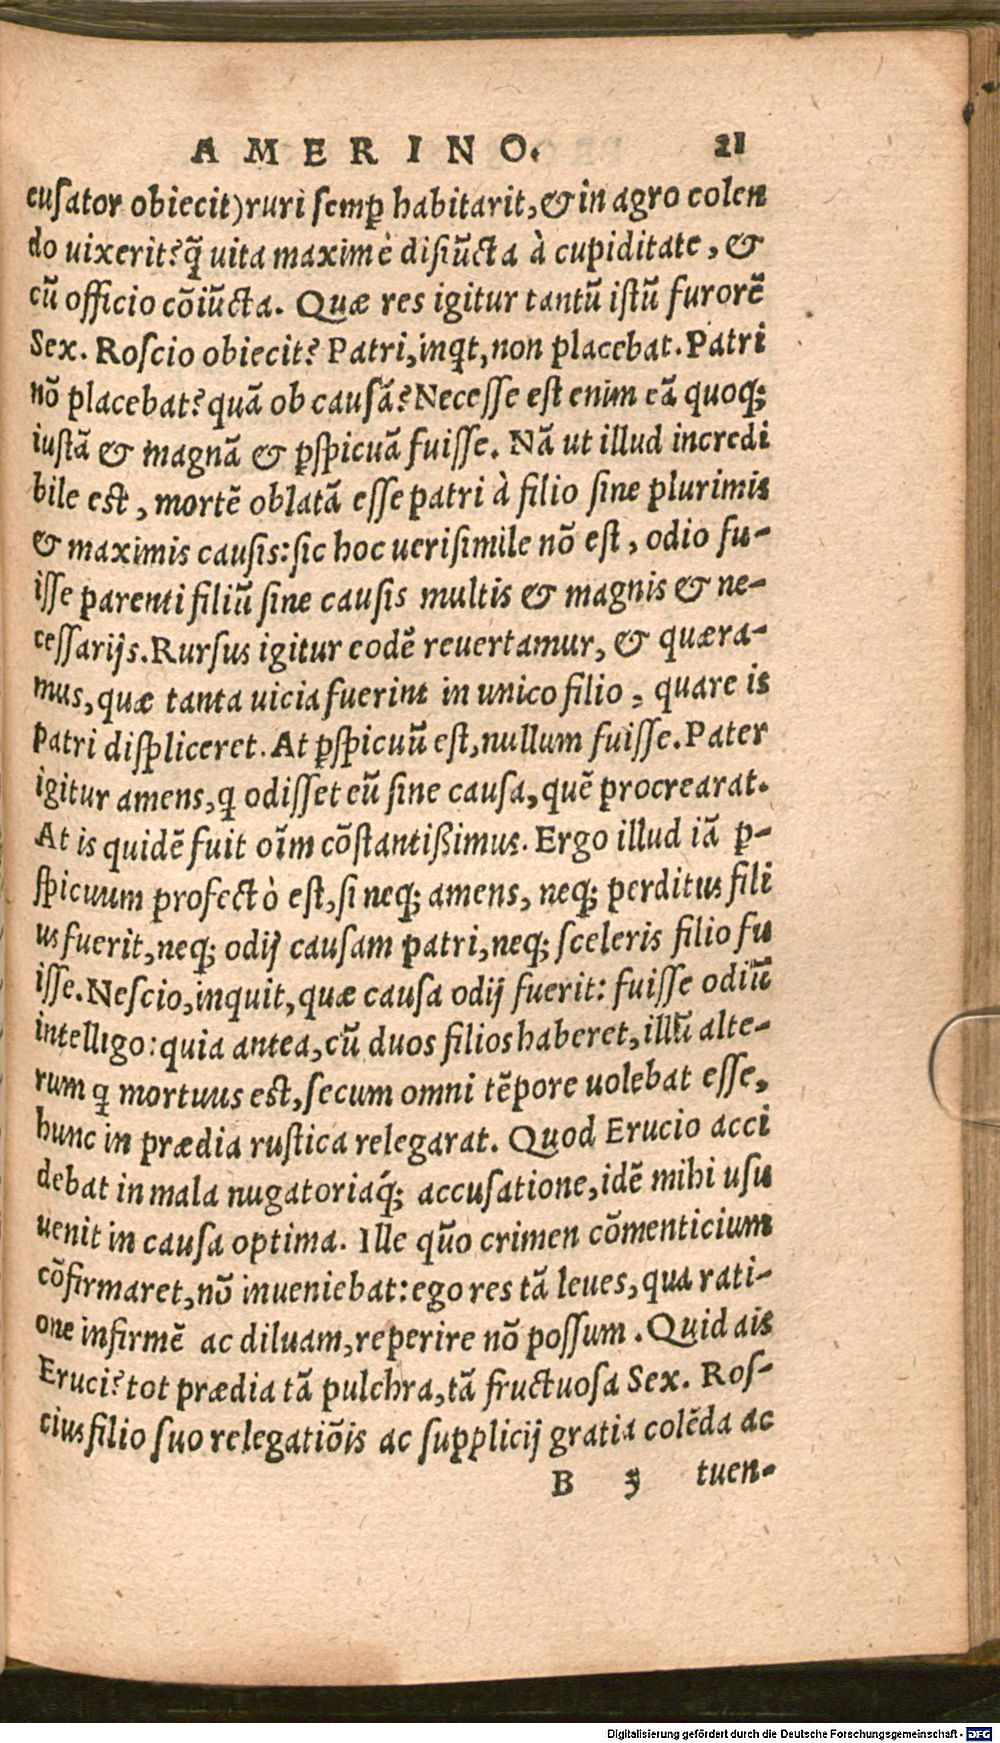 AMERINO. 21
cusator obiecit)ruri semꝑ habitarit,& in agro colen
do uixerit?q̃ uita maximè disiũcta à cupiditate, &
cũ officio cõiũcta. Quæ res igitur tantũ istũ furorẽ
Sex. Roscio obiecit? Patri,inqt,non placebat.Patri
nõ placebat?quã ob causã?Necesse est enim eã quoq;
iustã & magnã & ꝑspicuã fuisse. Nã ut illud incredi
bile est, mortẽ oblatã esse patri à filio sine plurimis
& maximis causis:sic hoc uerisimile nõ est, odio fu-
isse parenti filiũ sine causis multis & magnis & ne-
cessarijs.Rursus igitur eodẽ reuertamur, & quæra-
mus,quæ tanta uicia fuerint in unico filio, quare is
patri displiceret.At ꝑspicuũ est,nullum fuisse.Pater
igitur amens,q odisset eũ sine causa,quẽ procrearat.
At is quidẽ fuit oĩm cõstantißimus. Ergo illud iã ꝑ-
spicuum profectò est,si neq; amens, neq; perditus fili
us fuerit,neq; odij causam patri,neq; sceleris filio fu
isse.Nescio,inquit,quæ causa odij fuerit: fuisse odiũ
intelligo:quia antea,cũ duos filios haberet,illũ alte-
rum q mortuus est,secum omni tẽpore uolebat esse,
hunc in prædia rustica relegarat. Quod Erucio acci
debat in mala nugatoriaq́; accusatione,idẽ mihi usu
uenit in causa optima. Ille qũo crimen cõmenticium
cõfirmaret,nõ inueniebat:ego res tã leues,qua rati-
one infirmẽ ac diluam,reperire nõ possum.Quid ais
Eruci?tot prædia tã pulchra,tã fructuosa Sex. Ros-
cius filio suo relegatiõis ac supplicij gratia colẽda ac
B 3 tuen-
Digitalisierung gefördert durch die Deutsche Forschungsgemeinschaft - DFG